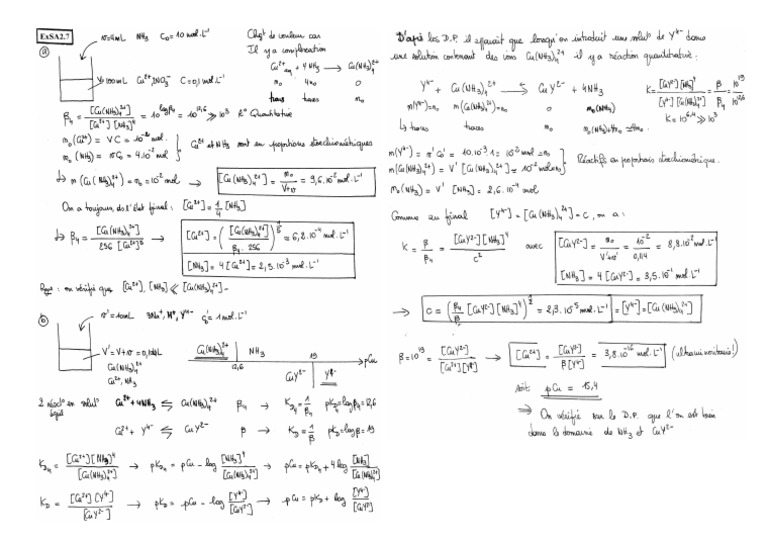 ExSA2.7
σ=4mL NH3 C0=10 mol.L-1
Chgt de couleur car
Il y a complexation
Cu2+aq + 4NH3 → Cu(NH3)4 2+
n0 4n0 0
traces traces n0
a
V=100mL Cu2+, 2NO3- C=0,1 mol/L
β4 = [Cu(NH3)4 2+] / [Cu2+][NH3]^4 = 10^logβ4 = 10^12,6 >> 10^3 R° Quantitative
n0(Cu2+) = VC = 10^-2 mol.
n0(NH3) = σC0 = 4.10^-2 mol
Cu2+ et NH3 sont en proportions stoechiométriques
↳ n(Cu(NH3)4 2+) = n0 = 10^-2 mol → [Cu(NH3)4 2+] = n0/V+σ = 9,6.10^-2 mol.L-1
On a toujours dans l'état final : [Cu2+] = 1/4 [NH3]
↳ β4 = [Cu(NH3)4 2+] / 256 [Cu2+]^5 → [Cu2+] = ([Cu(NH3)4 2+] / β4 . 256)^1/5 = 6,2.10^-4 mol.L-1
[NH3] = 4[Cu2+] = 2,5.10^-3 mol.L-1
Rque : on vérifie que [Cu2+], [NH3] << [Cu(NH3)4 2+]
b
σ'=10mL 3Na+, H+, Y4- C0'=1 mol.L-1
V'=V+σ=0,104L
Cu(NH3)4 2+
Cu2+, NH3
Cu(NH3)4 2+ NH3
12,6 19 pCu
CuY2- Y4-
2 réact° en solut°
Cu2+ + 4NH3 ⇌ Cu(NH3)4 2+ β4 → KD4 = 1/β4 pKD4 = logβ4 = 12,6
Cu2+ + Y4- ⇌ CuY2- β → KD = 1/β pKD = logβ = 19
KD4 = [Cu2+][NH3]^4 / [Cu(NH3)4 2+] → pKD4 = pCu - log [NH3]^4 / [Cu(NH3)4 2+] → pCu = pKD4 + 4 log [NH3] / [Cu(NH3)4 2+]
KD = [Cu2+][Y4-] / [CuY2-] → pKD = pCu - log [Y4-] / [CuY2-] → pCu = pKD + log [Y4-] / [CuY2-]
D'après les D.P. il apparaît que lorsqu'on introduit une solut° de Y4- dans
une solution contenant des ions Cu(NH3)4 2+ il y a réaction quantitative :
Y4- + Cu(NH3)4 2+ → CuY2- + 4NH3
K = [CuY2-][NH3]^4 / [Y4-][Cu(NH3)4 2+] = β/β4 = 10^19 / 10^12,6
n(Y4-)=n0 n(Cu(NH3)4 2+)=n0 0 n0(NH3)
K = 10^6,4 >> 10^3
↳ traces traces n0 n0(NH3)+4n0 ≈ 4n0.
n(Y4-) = σ'C0' = 10.10^-3.1 = 10^-2 mol = n0
n(Cu(NH3)4 2+) = V'[Cu(NH3)4 2+] = 10^-2 mol = n0
n0(NH3) = V'[NH3] = 2,6.10^-4 mol
Réactifs en proportions stoechiométrique.
Comme au final [Y4-] = [Cu(NH3)4 2+] = C, on a :
K = β/β4 = [CuY2-][NH3]^4 / C^2 avec [CuY2-] = n0/V'+σ' = 10^-2/0,114 = 8,8.10^-2 mol.L-1
[NH3] = 4[CuY2-] = 3,5.10^-1 mol.L-1
→ C = (β4/β [CuY2-][NH3]^4)^1/2 = 2,3.10^-5 mol.L-1 = [Y4-] = [Cu(NH3)4 2+]
β = 10^19 = [CuY2-] / [Cu2+][Y4-] → [Cu2+] = [CuY2-] / β[Y4-] = 3,8.10^-16 mol.L-1 (ultraminoritaire!)
soit pCu = 15,4
⇒ On vérifie sur le D.P. que l'on est bien
dans le domaine de NH3 et CuY2-